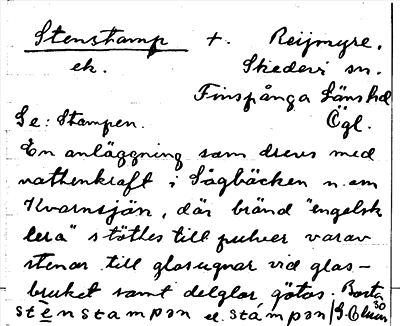 Stenstamp +. Reijmyre.
ek. Skedevi sn.
Finspånga Länshd
Se: Stampen. Ögl.
En anläggning som drevs med
vattenkraft i Sågbäcken n. om
Kvarnsjön, där bränd "engelsk
lera" stöttes till pulver varav
stenar till glasugnar vid glas-
bruket samt deglar götos. Borta
stenstampən el. stámpən